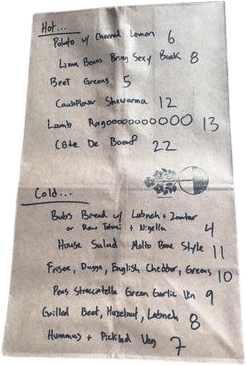 Hot...
Potato w/ Charred Lemon 6
Lima Beans Bring Sexy Back 8
Beet Greens 5
Cauliflower Shawarma 12
Lamb Ragooooooooooo 13
Côte De Boeuf 22
Cold...
Bubs Bread w/ Labneh + Zaatar
or Raw Tahini + Nigella 4
House Salad Malto Bene Style 11
Frisee, Duggs, English Cheddar, Greens 10
Peas Straccatella Green Garlic Vin 9
Grilled Beet, Hazelnut, Labneh 8
Hummus + Pickled Veg 7